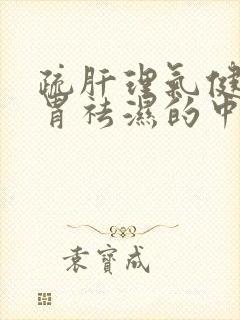 疏肝理氣健
胃祛濕的中
袁寶成